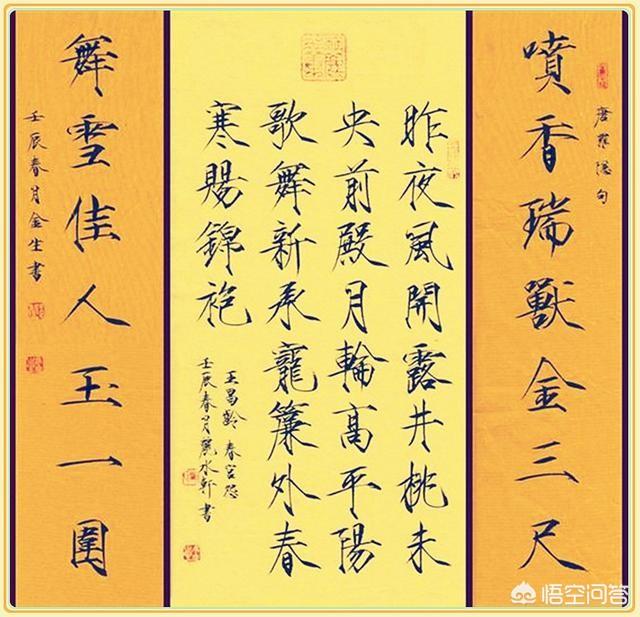 唐羅隱句
噴香瑞獸金三尺
昨夜風開露井桃未
央前殿月輪高平陽
歌舞新承寵簾外春
寒賜錦袍
王昌齡 春宮怨
壬辰春月麗水軒書
舞雪佳人玉一圍
壬辰春月金生書
悟空问答